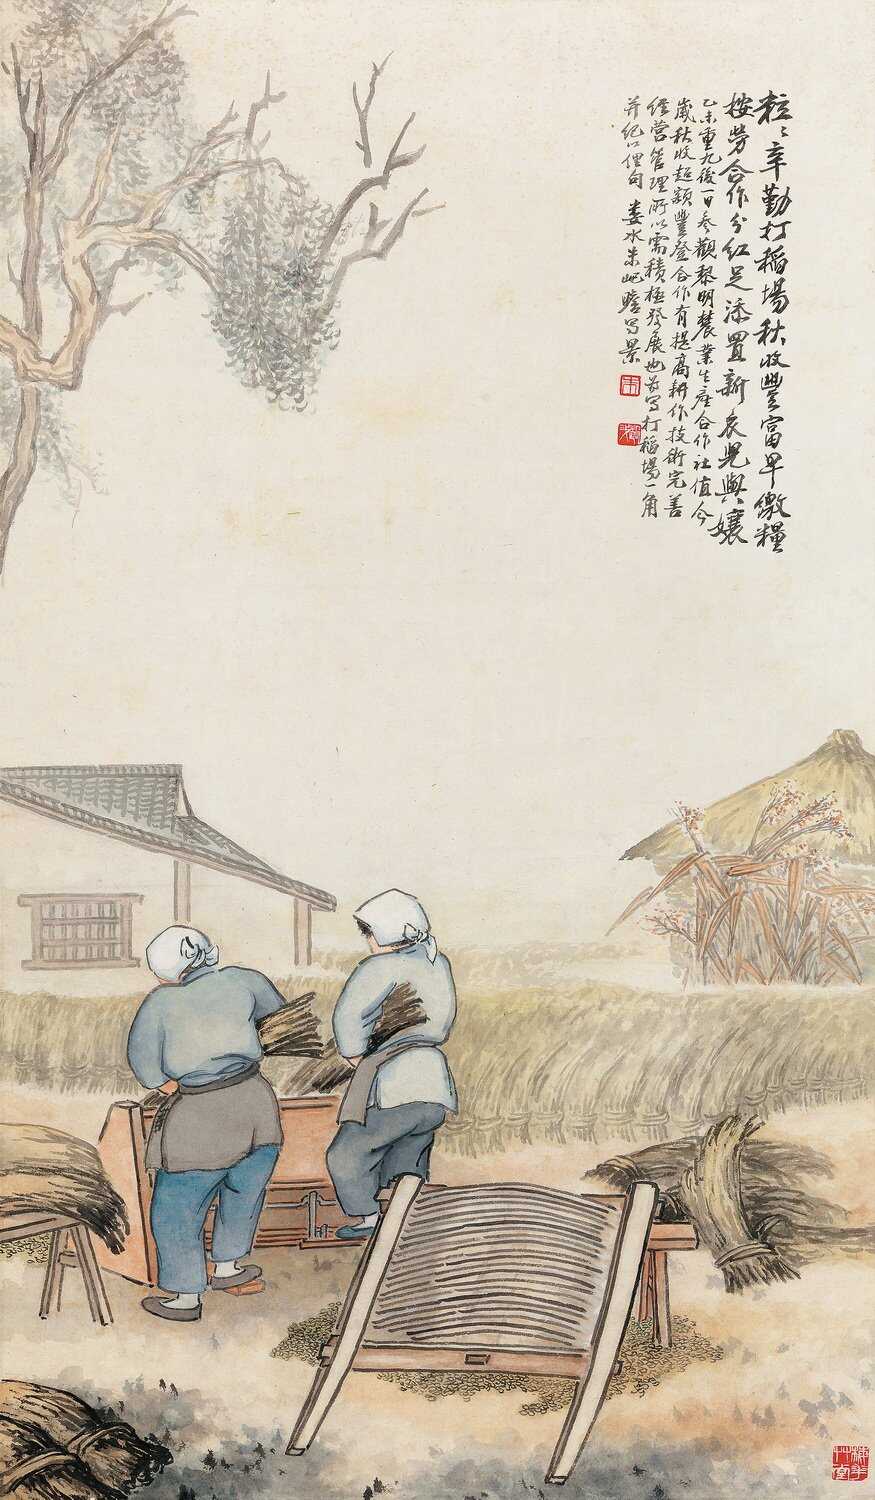 粒々辛勤打稻場秋收豐富早繳糧
按勞合作分紅足添置新衣兒與孃
乙未重九後一日參觀黎明農業生産合作社值今
歲秋收超額豐登合作有提高耕作技術完善
經营管理所以需積極發展也為写打稻場一角
并紀以俚句 婁水朱屺瞻写景
朱
屺瞻
梅花
草堂